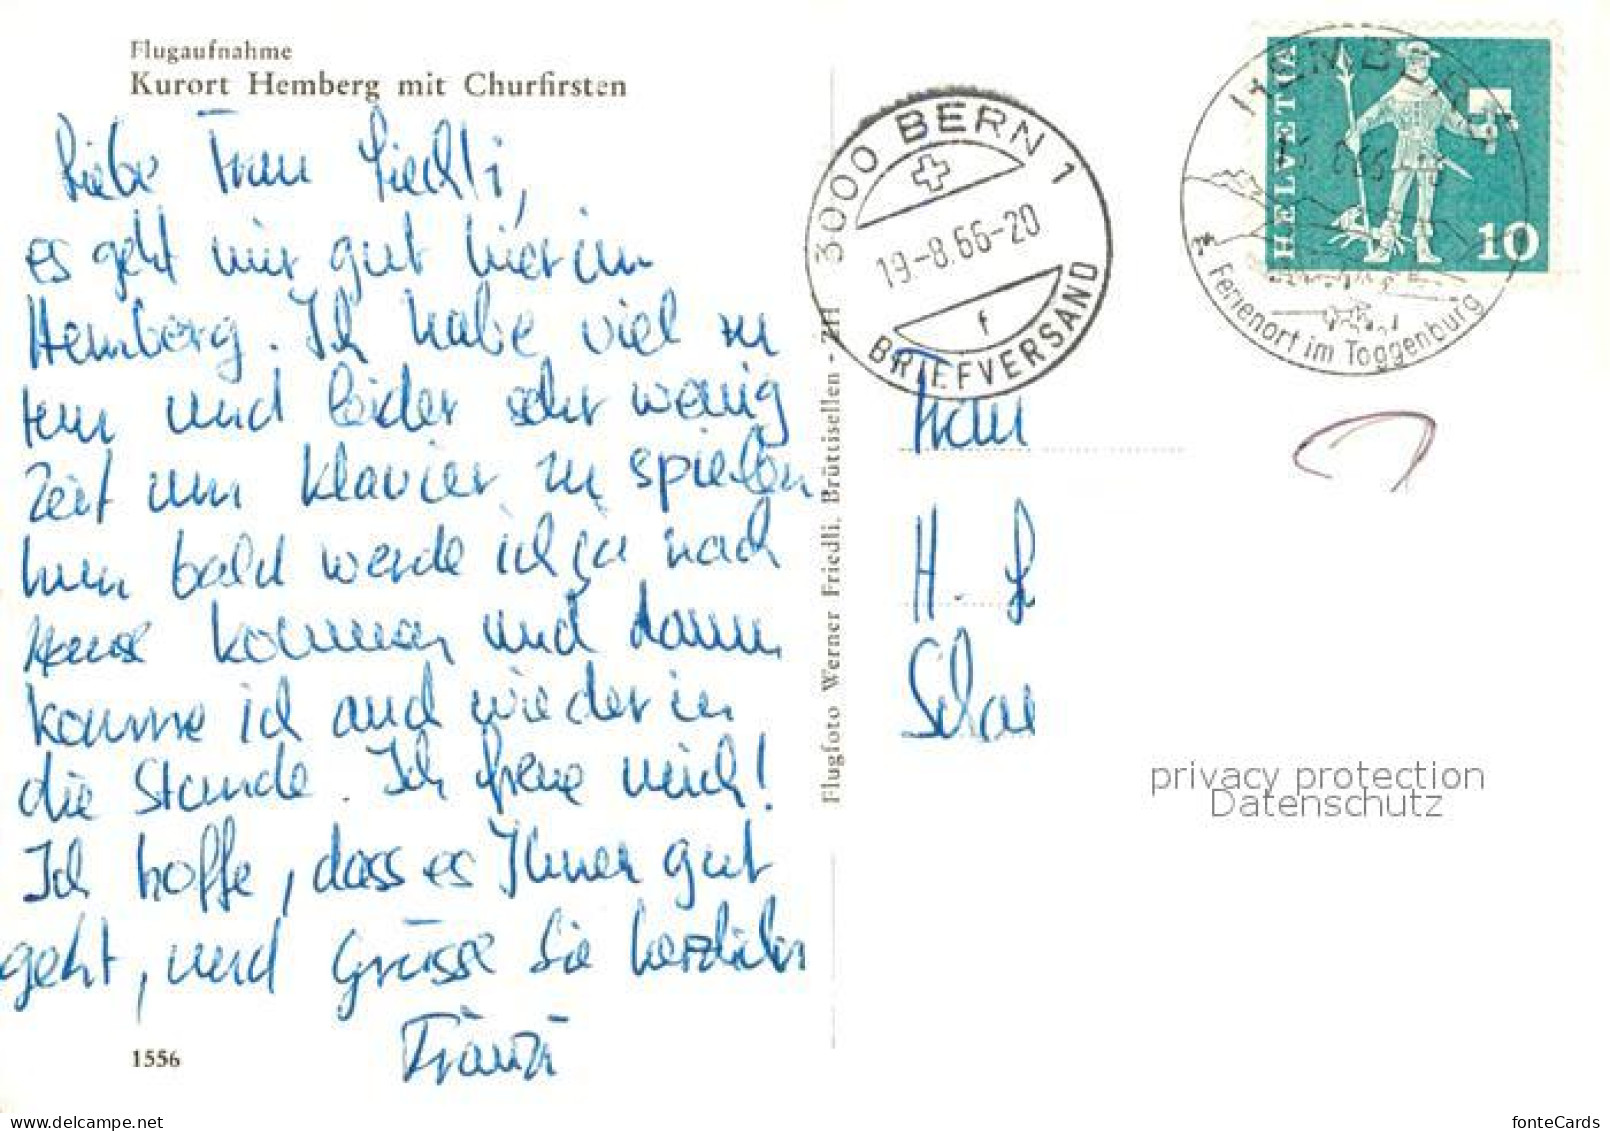 Flugaufnahme
Kurort Hemberg mit Churfirsten
Liebe Frau Liechti,
es geht mir gut hier im
Hemberg. Ich habe viel zu
tun und leider sehr wenig
Zeit um Klavier zu spielen
nun bald werde ich ja nach
Hause kommen und dann
komme ich auch wieder in
die Stunde. Ich freue mich!
Ich hoffe, dass es Ihnen gut
geht, und Grüsse Sie herzlich
Fränzi
1556
Flugfoto Werner Friedli, Brüttisellen - ZH
3000 BERN 1
19.-8.66-20
f
BRIEFVERSAND
HEMBERG
Ferienort im Toggenburg
HELVETIA
10
Frau
H. L
Schae
privacy protection
Datenschutz
delcampe.net
fonteCards